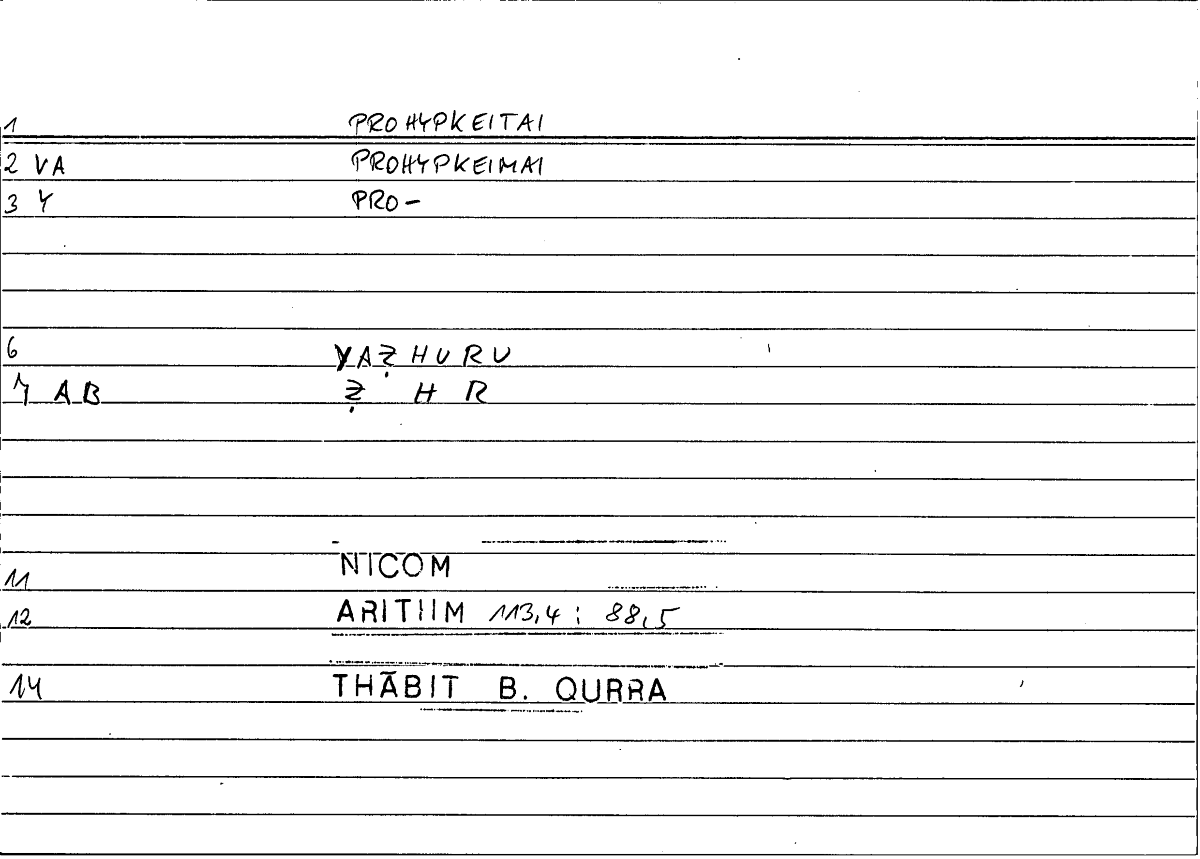 1 PROHYPKEITAI
2 VA PROHYPKEIMAI
3 Y PRO-
6 YAẒHURU
7 AB Ẓ H R
11 NICOM
12 ARITIIM 113,4 ; 88,5
14 THĀBIT B. QURRA